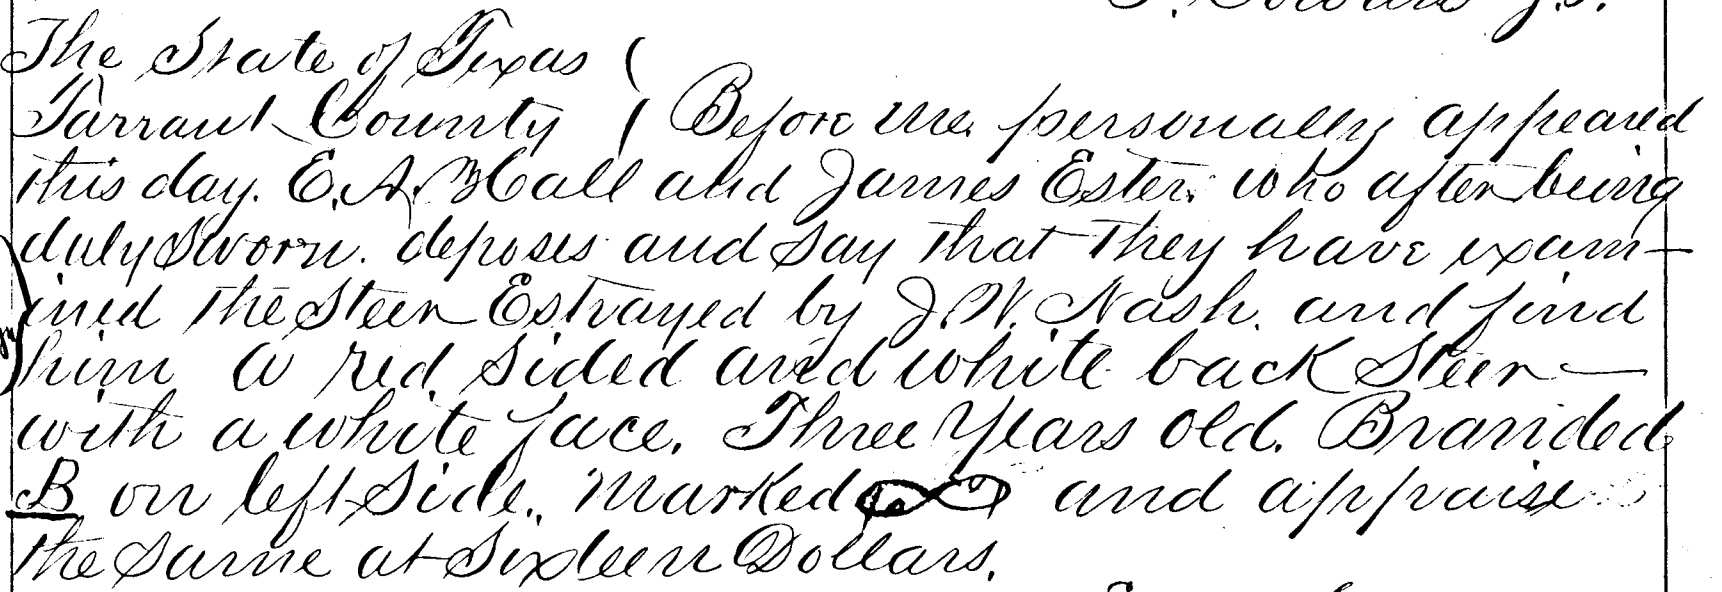 The State of Texas (
Tarrant County ( Before me personally appeared
this day. E. A. Hall and James Ester. who after being
duly sworn. deposes and say that they have exam-
ined the Steer Estrayed by J. W. Nash. and find
him a red sided and white back Steer
with a white face. Three Years old. Branded
B on left Side. Marked and appraise
the same at Sixteen Dollars.